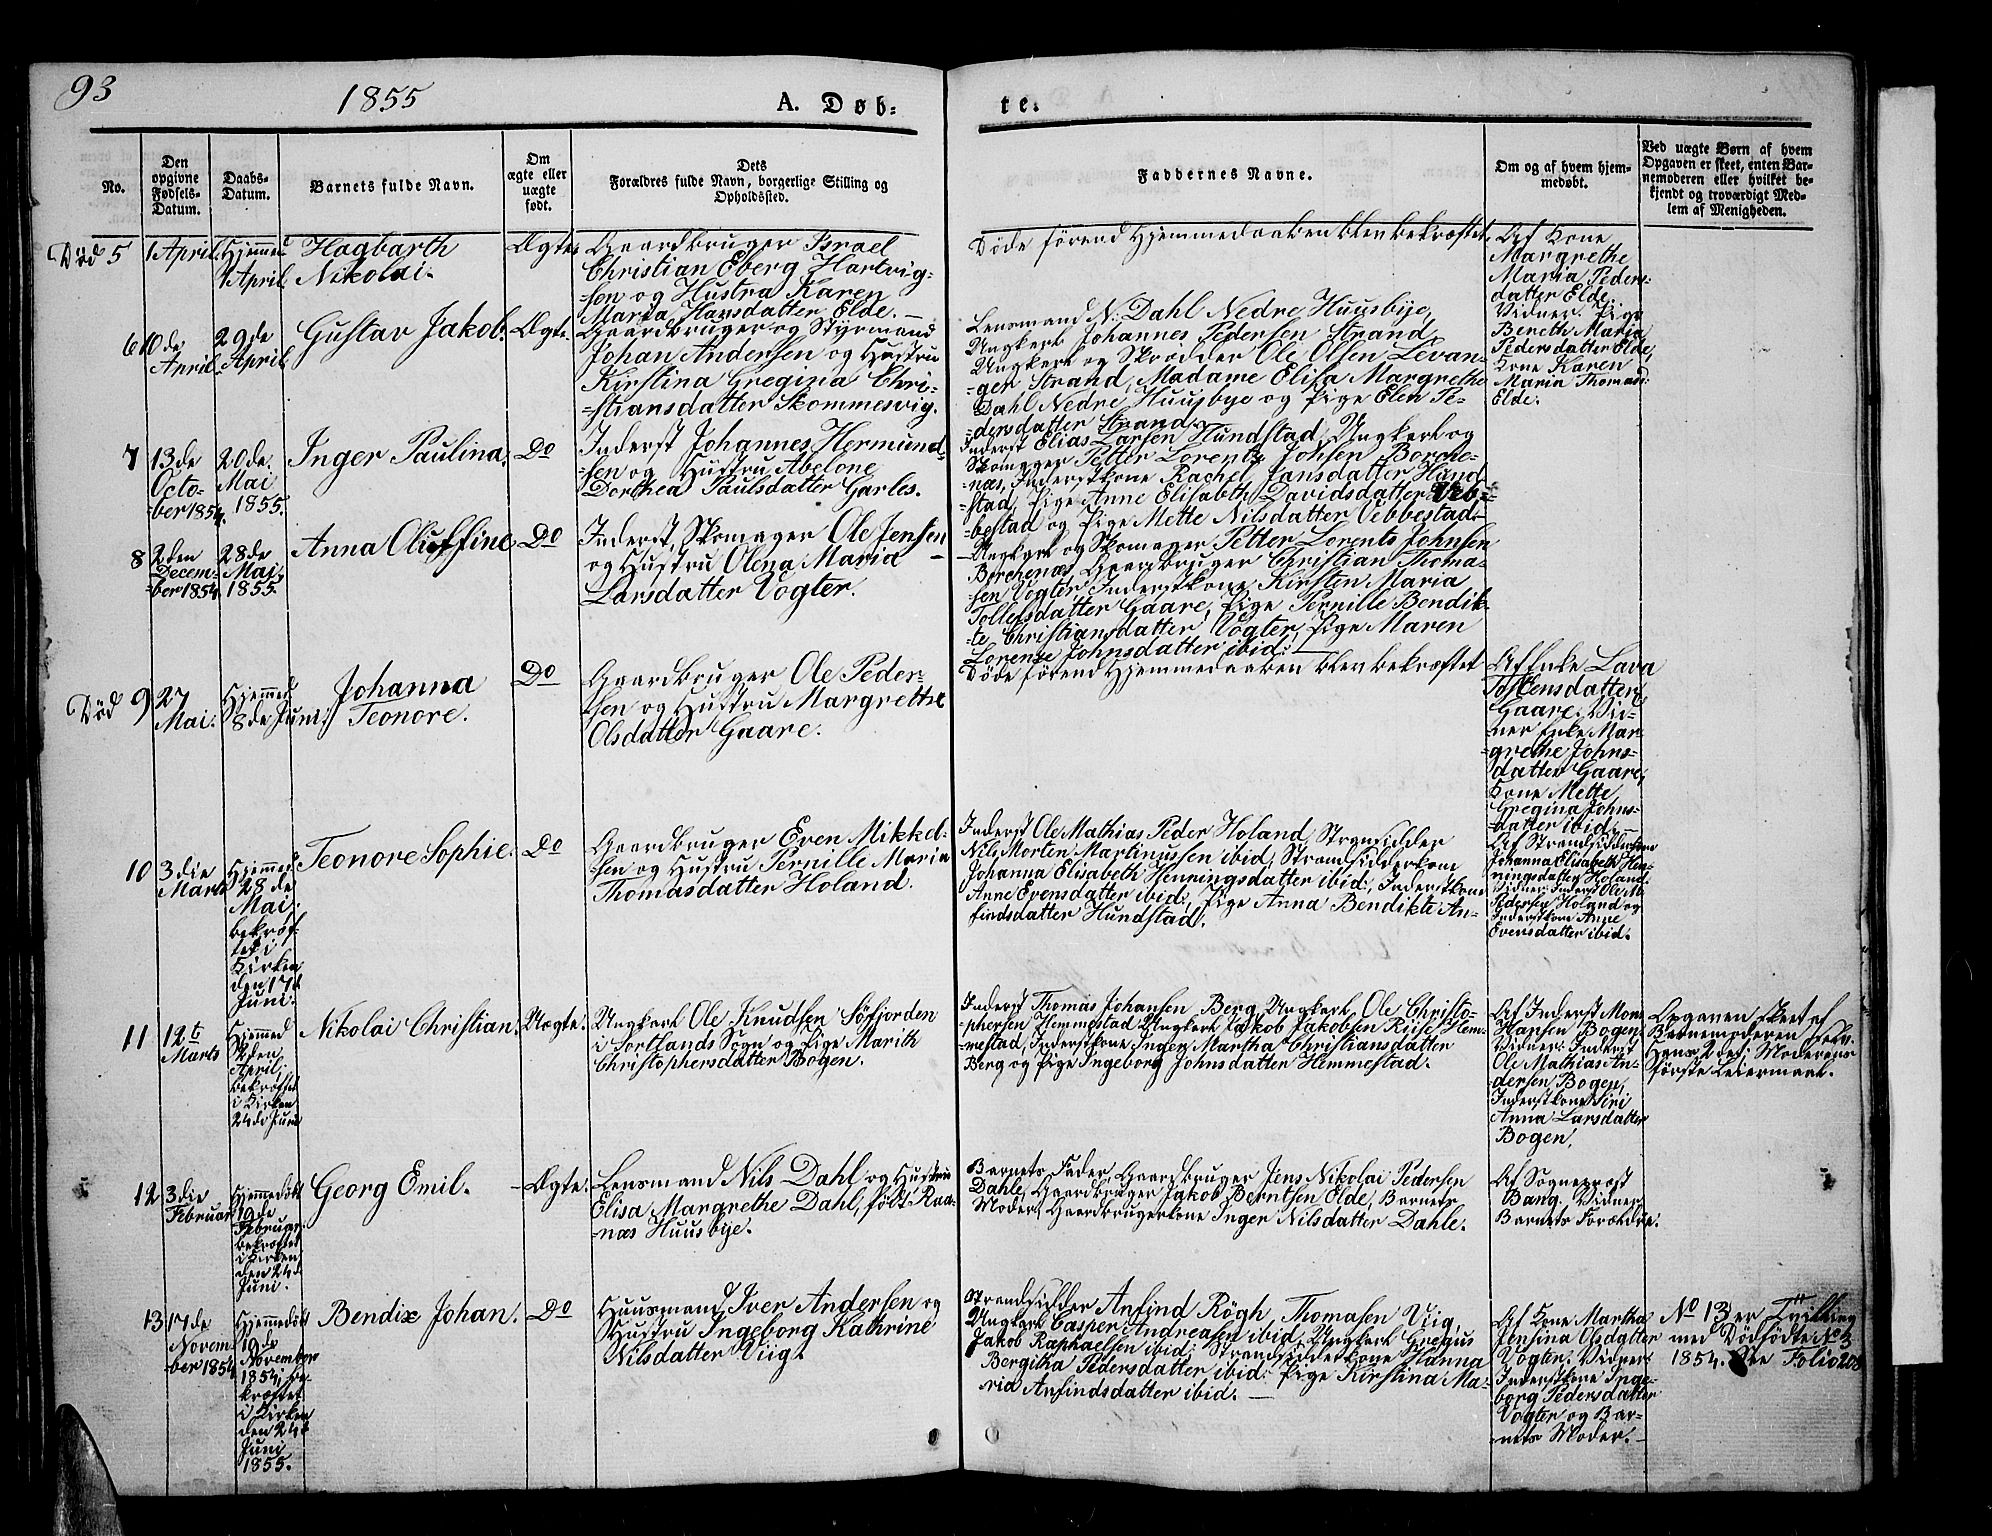 93
1855
A. Døb-
te.
No.
Den
opgivne
Fødsels-
Datum.
Daabs-
Datum.
Barnets fulde Navn.
Om
ægte eller
uægte
født.
Dets
Forældres fulde Navn, borgerlige Stilling og
Opholdssted.
Faddernes Navne.
Om og af hvem hjem-
medøbt.
Ved uægte Børn af hvem
Opgaven er skeet, enten Bar-
nemoderen eller hvilket be-
kjendt og troværdigt Med-
lem af Menigheden.
Død 5
1 April.
Hjemmed
1 April.
Hagbarth
Nikolai.
Ægte.
Gaardbruger Israel
Christian Eberg Hartvig-
-sen og Hustru Karen
Maria Hansdatter Elde. —
Døde førend Hjemmedaaben blev bekræftet.
Af Kone
Margrethe
Maria Peders-
datter Elde.
Vidner. Pige
Bereth Maria
Pedersdatter Elde,
Kone Karen
Maria Thomasd:
Elde.
6
10de
April.
29de
April.
Gustav Jakob.
Ægte.
Gaardbruger og Styrmand
Johan Andersen og Hustru
Kirstina Gregina Chri-
-stiansdatter Skommesvig.
Lensmand N: Dahl Nedre Huusbye,
Ungkarl Johannes Pedersen Strand,
Ungkarl og Skrædder Ole Olsen Levan-
-gen Strand, Madame Elisa Margrethe
Dahl Nedre Huusbye og Pige Elen Pe-
-dersdatter Strand.
7
13de
Octo-
-ber 1854.
20de.
Mai
1855.
Inger Paulina.
Do
Inderst Johannes Hermund-
-sen og Hustru Abelone
Dorthea Paulsdatter Garles.
Inderst Elias Larsen Hundstad, Ungkarl og
Skomager Petter Lorents Johsen Borche-
-næs, Inderstkone Rachel Jansdatter Hund-
-stad, Pige Anne Elisabeth Davidsdatter Veb-
-bestad og Pige Mette Nilsdatter Vebbestad.
8
2den
Decem-
-ber 1854.
28de
Mai,
1855.
Anna Oluffine
Do
Inderst, Skomager Ole Jensen
og Hustru Olena Maria
Larsdatter Vogter.
Ungkarl og Skomager Petter Lorents Johnsen
Borchenæs, Gaardbruger Christian Thoma-
-sen Vogter, Inderstkone Kirsten Maria
Tollefsdatter Gaare, Pige Pernille Bendik-
-te Christiansdatter Vogter, Pige Maren
Lorense Johnsdatter ibid: —
Død 9
27
Mai.
Hjemmed
8de Juni.
Johanna
Teonore.
Do
Gaardbruger Ole Peder-
-sen og Hustru Margrethe
Olsdatter Gaare.
Døde førend Hjemmedaaben blev bekræftet
Af Enke Lava
Tostensdatter
Gaare. Vid-
-ner Enke Mar-
-grethe Johns-
-datter Gaare,
Kone Mette
Gregina Johns-
-datter ibid:
10
3die
Marts
Hjemmed
28de
Mai.
bekræf-
-tet i
Kirken
den 17de
Juni.
Teonore Sophie.
Do
Gaardbruger Even Mikkel-
-sen og Hustru Pernille Maria
Thomasdatter Holand.
Inderst Ole Mathias Peder Holand, Strandsidder
Nils Morten Martinussen ibid, Strandsidderkone
Johanna Elisabeth Henningsdatter ibid:, Inderstkone
Anne Evensdatter ibid:, Pige Anna Bendikte An-
findsdatter Hundstad.
Af Strandsidderkone
Johanna Elisabeth Hen-
ningsdatter Holand.
Vidner: Inderst Ole M.
Pedersen Holand og
Inderstkone Anne
Evensdatter ibid.
11
12te
Marts
Hjemmed
2den
April.
bekræftet
i Kirken
24de Juni
Nikolai Christian.
Uægte.
Ungkarl Ole Knudsen Søfjorden
i Sortlands Sogn og Pige Marith
Christophersdatter Bogen.
Inderst Thomas Johansen Berg, Ungkarl Ole Christo-
-phersen Hemmestad Ungkarl Jakob Jakobsen Riise Hem-
-mestad, Inderstkone Inger Martha Christiansdatter
Berg og Pige Ingeborg Johnsdatter Hemmestad.
Af Inderst Mons
Hansen Bogen.
Vidner: Inderst
Ole Mathias An-
dersen Bogen,
Inderstkone Siri
Anna Larsdatter
Bogen.
Opgaven skeet af
Barnemoderen selv.
Hans 2det; Moderens
første Leiermaal.
12
3die
Februar
Hjemmedøbt
19de
Februar.
bekræftet
i Kirken
den 24de
Juni.
Georg Emil.
Ægte.
Lensmand Nils Dahl og Hustru
Elisa Margrethe Dahl, født Raa-
-næs Huusbye.
Barnets Fader, Gaardbruger Jens Nikolai Pedersen
Dahle, Gaardbruger Jakob Berntsen Elde, Barnets
Moder, Gaardbrugerkone Inger Nilsdatter Dahle.
Af Sogneprost
Bang. Vidner
Barnets Forældre.
13
17de
Novem-
ber 1854
Hjemmedøbt
19de
November
1854, be-
kræftet
i Kirken
den 24de
Juni
1855.
Bendix Johan.
Do
Huusmand Iver Andersen og
Hustru Ingeborg Kathrine
Nilsdatter Viig.
Strandsidder Anfind Rögh Thomasen Viig,
Ungkarl Casper Andreasen ibid, Ungkarl Gregus
Jakob Raphaelsen ibid: Strandsidderkone Hanna
Bergitha Pedersdatter ibid: Pige Kirstina Ma-
ria Anfindsdatter ibid. —
Af Kone Martha
Jensina Olsdatter
Vogter. Vidner
Inderstkone Inge-
borg Pedersdatter
Vogter og Bar-
-nets Moder. —
No 13 er Tvilling
med Dødfødte No 3
1854. See Folio 208